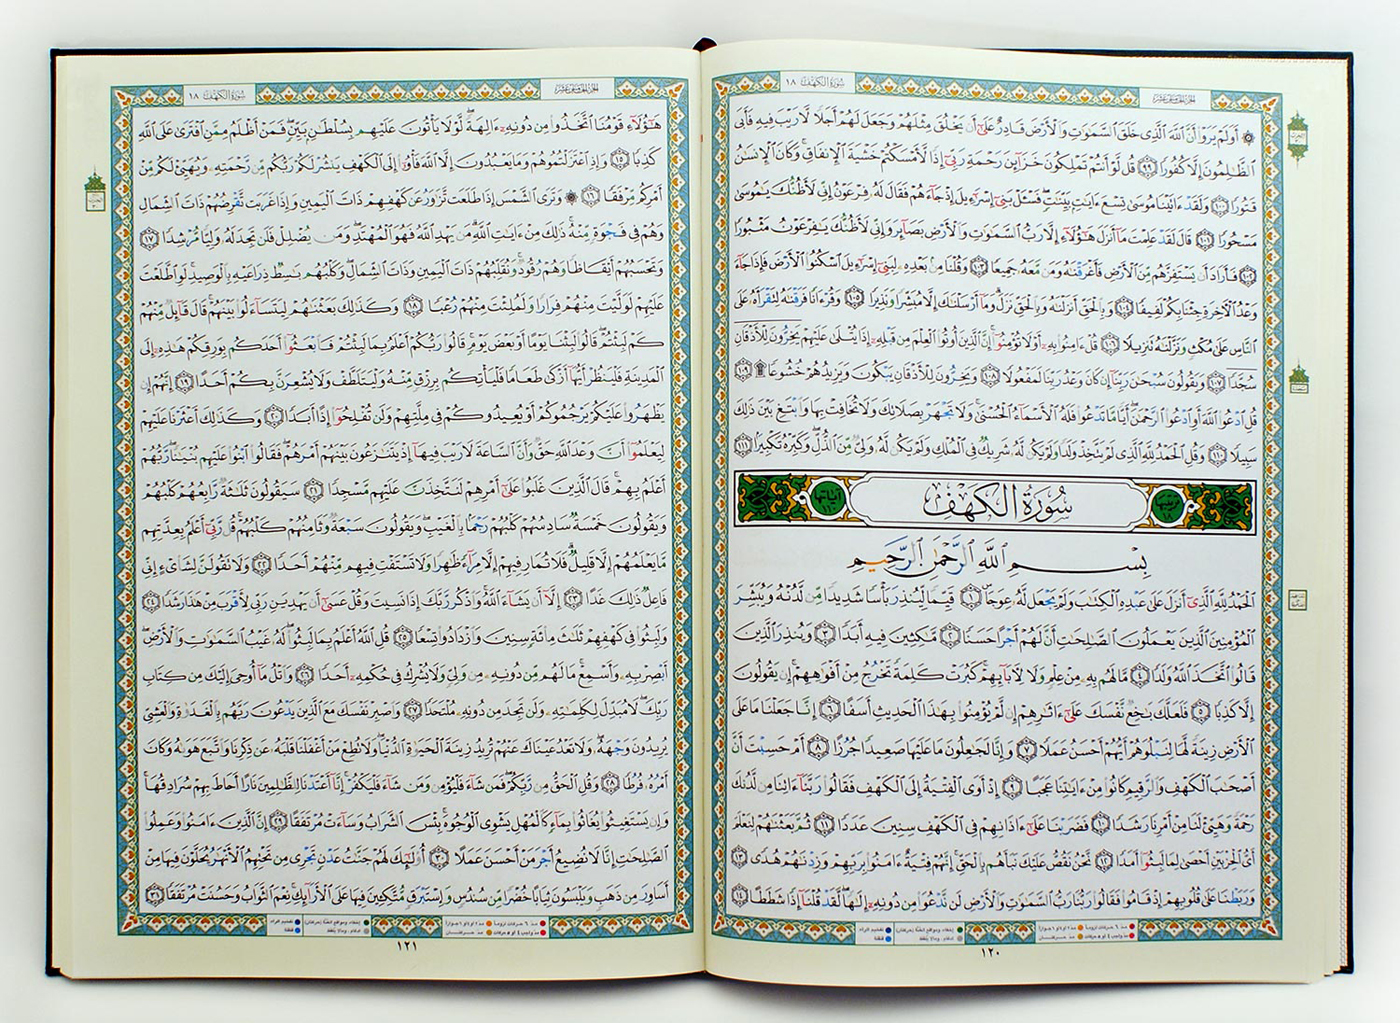 الجزء الخامس عشر
سورة الكهف ١٨
۞ أولم يروا أن الله الذي خلق السموت والأرض قادر على أن يخلق مثلهم وجعل لهم أجلا لا ريب فيه فأبى
الظلمون إلا كفورا ٩٩ قل لو أنتم تملكون خزائن رحمة ربي إذا لأمسكتم خشية الإنفاق وكان الإنسن
قتورا ١٠٠ ولقد ءاتينا موسى تسع ءايت بينت فسئل بني إسرءيل إذ جاءهم فقال له فرعون إني لأظنك يموسى
مسحورا ١٠١ قال لقد علمت ما أنزل هؤلاء إلا رب السموت والأرض بصائر وإني لأظنك يفرعون مثبورا
١٠٢ فأراد أن يستفزهم من الأرض فأغرقنه ومن معه جميعا ١٠٣ وقلنا من بعده لبني إسرءيل اسكنوا الأرض فإذا جاء
وعد الأخرة جئنا بكم لفيفا ١٠٤ وبالحق أنزلنه وبالحق نزل وما أرسلنك إلا مبشرا ونذيرا ١٠٥ وقرءانا فرقنه لتقرأه على
الناس على مكث ونزلنه تنزيلا ١٠٦ قل ءامنوا به أو لا تؤمنوا إن الذين أوتوا العلم من قبله إذا يتلى عليهم يخرون للأذقان
سجدا ١٠٧ ويقولون سبحن ربنا إن كان وعد ربنا لمفعولا ١٠٨ ويخرون للأذقان يبكون ويزيدهم خشوعا ۩ ١٠٩
قل ادعوا الله أو ادعوا الرحمن أيا ما تدعوا فله الأسماء الحسنى ولا تجهر بصلاتك ولا تخافت بها وابتغ بين ذلك
سبيلا ١١٠ وقل الحمد لله الذي لم يتخذ ولدا ولم يكن له شريك في الملك ولم يكن له ولي من الذل وكبره تكبيرا ١١١
ترتيبها ١٨
سورة الكهف
آياتها ١١٠
بسم الله الرحمن الرحيم
الحمد لله الذي أنزل على عبده الكتب ولم يجعل له عوجا ١ قيما لينذر بأسا شديدا من لدنه ويبشر
المؤمنين الذين يعملون الصلحت أن لهم أجرا حسنا ٢ مكثين فيه أبدا ٣ وينذر الذين
قالوا اتخذ الله ولدا ٤ ما لهم به من علم ولا لأبائهم كبرت كلمة تخرج من أفوههم إن يقولون
إلا كذبا ٥ فلعلك بخع نفسك على ءاثرهم إن لم يؤمنوا بهذا الحديث أسفا ٦ إنا جعلنا ما على
الأرض زينة لها لنبلوهم أيهم أحسن عملا ٧ وإنا لجعلون ما عليها صعيدا جرزا ٨ أم حسبت أن
أصحب الكهف والرقيم كانوا من ءايتنا عجبا ٩ إذ أوى الفتية إلى الكهف فقالوا ربنا ءاتنا من لدنك
رحمة وهيئ لنا من أمرنا رشدا ١٠ فضربنا على ءاذانهم في الكهف سنين عددا ١١ ثم بعثنهم لنعلم
أي الحزبين أحصى لما لبثوا أمدا ١٢ نحن نقص عليك نبأهم بالحق إنهم فتية ءامنوا بربهم وزدنهم هدى ١٣
وربطنا على قلوبهم إذ قاموا فقالوا ربنا رب السموت والأرض لن ندعوا من دونه إلها لقد قلنا إذا شططا ١٤
١٢٠
الجزء الخامس عشر
سورة الكهف ١٨
هؤلاء قومنا اتخذوا من دونه ءالهة لولا يأتون عليهم بسلطن بين فمن أظلم ممن افترى على الله
كذبا ١٥ وإذ اعتزلتموهم وما يعبدون إلا الله فأوا إلى الكهف ينشر لكم ربكم من رحمته ويهيئ لكم من
أمركم مرفقا ١٦ ۞ وترى الشمس إذا طلعت تزور عن كهفهم ذات اليمين وإذا غربت تقرضهم ذات الشمال
وهم في فجوة منه ذلك من ءايت الله من يهد الله فهو المهتد ومن يضلل فلن تجد له وليا مرشدا ١٧
وتحسبهم أيقاظا وهم رقود ونقلبهم ذات اليمين وذات الشمال وكلبهم بسط ذراعيه بالوصيد لو اطلعت
عليهم لوليت منهم فرارا ولملئت منهم رعبا ١٨ وكذلك بعثنهم ليتساءلوا بينهم قال قائل منهم
كم لبثتم قالوا لبثنا يوما أو بعض يوم قالوا ربكم أعلم بما لبثتم فابعثوا أحدكم بورقكم هذه إلى
المدينة فلينظر أيها أزكى طعاما فليأتكم برزق منه وليتلطف ولا يشعرن بكم أحدا ١٩ إنهم إن
يظهروا عليكم يرجموكم أو يعيدوكم في ملتهم ولن تفلحوا إذا أبدا ٢٠ وكذلك أعثرنا عليهم
ليعلموا أن وعد الله حق وأن الساعة لا ريب فيها إذ يتنزعون بينهم أمرهم فقالوا ابنوا عليهم بنينا ربهم
أعلم بهم قال الذين غلبوا على أمرهم لنتخذن عليهم مسجدا ٢١ سيقولون ثلثة رابعهم كلبهم
ويقولون خمسة سادسهم كلبهم رجما بالغيب ويقولون سبعة وثامنهم كلبهم قل ربي أعلم بعدتهم
ما يعلمهم إلا قليل فلا تمار فيهم إلا مراء ظهرا ولا تستفت فيهم منهم أحدا ٢٢ ولا تقولن لشائ إني
فاعل ذلك غدا ٢٣ إلا أن يشاء الله واذكر ربك إذا نسيت وقل عسى أن يهدين ربي لأقرب من هذا رشدا ٢٤
ولبثوا في كهفهم ثلث مائة سنين وازدادوا تسعا ٢٥ قل الله أعلم بما لبثوا له غيب السموت والأرض
أبصر به وأسمع ما لهم من دونه من ولي ولا يشرك في حكمه أحدا ٢٦ واتل ما أوحي إليك من كتاب
ربك لا مبدل لكلمته ولن تجد من دونه ملتحدا ٢٧ واصبر نفسك مع الذين يدعون ربهم بالغدوة والعشي
يريدون وجهه ولا تعد عيناك عنهم تريد زينة الحيوة الدنيا ولا تطع من أغفلنا قلبه عن ذكرنا واتبع هوىه وكان
أمره فرطا ٢٨ وقل الحق من ربكم فمن شاء فليؤمن ومن شاء فليكفر إنا أعتدنا للظلمين نارا أحاط بهم سرادقها
وإن يستغيثوا يغاثوا بماء كالمهل يشوي الوجوه بئس الشراب وساءت مرتفقا ٢٩ إن الذين ءامنوا وعملوا
الصلحت إنا لا نضيع أجر من أحسن عملا ٣٠ أولئك لهم جنت عدن تجري من تحتهم الأنهر يحلون فيها من
أساور من ذهب ويلبسون ثيابا خضرا من سندس وإستبرق متكئين فيها على الأرائك نعم الثواب وحسنت مرتفقا ٣١
١٢١